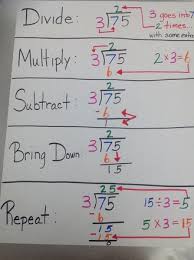 Divide:
2
3)75
3 goes into 7
2 times...
with some extra
Multiply:
2
3)75
6
2×3=6
Subtract:
2
3)75
-6
1
Bring Down
2
3)75
-6
15
Repeat:
25
3)75
-6
15
-15
15÷3=5
5×3=15